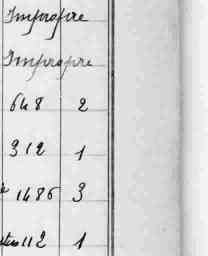 Impropre
Impropre
648 2
312 1
1486 3
112 1